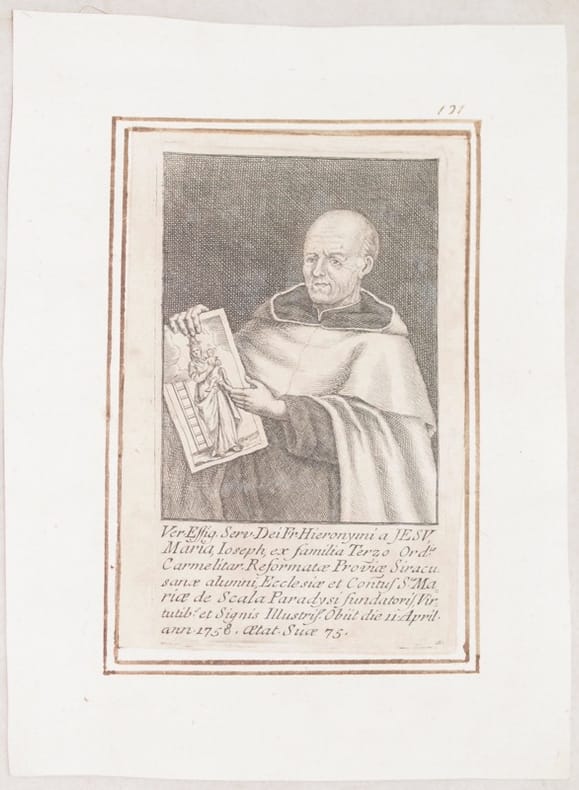 121
Ver. Effig. Serv. Dei Fr. Hieronymi a JESV,
Maria, Ioseph, ex familia Terzo Ord.s
Carmelitar. Reformatæ Proviæ Siracu
sanæ alumni, Ecclesiæ et Contus S.æ Ma,
riæ de Scala Paradysi fundatoris, Vir-
tutib.s et Signis Illustris. Obiit die 11. April.
ann. 1758. Ætat. Suæ 75.